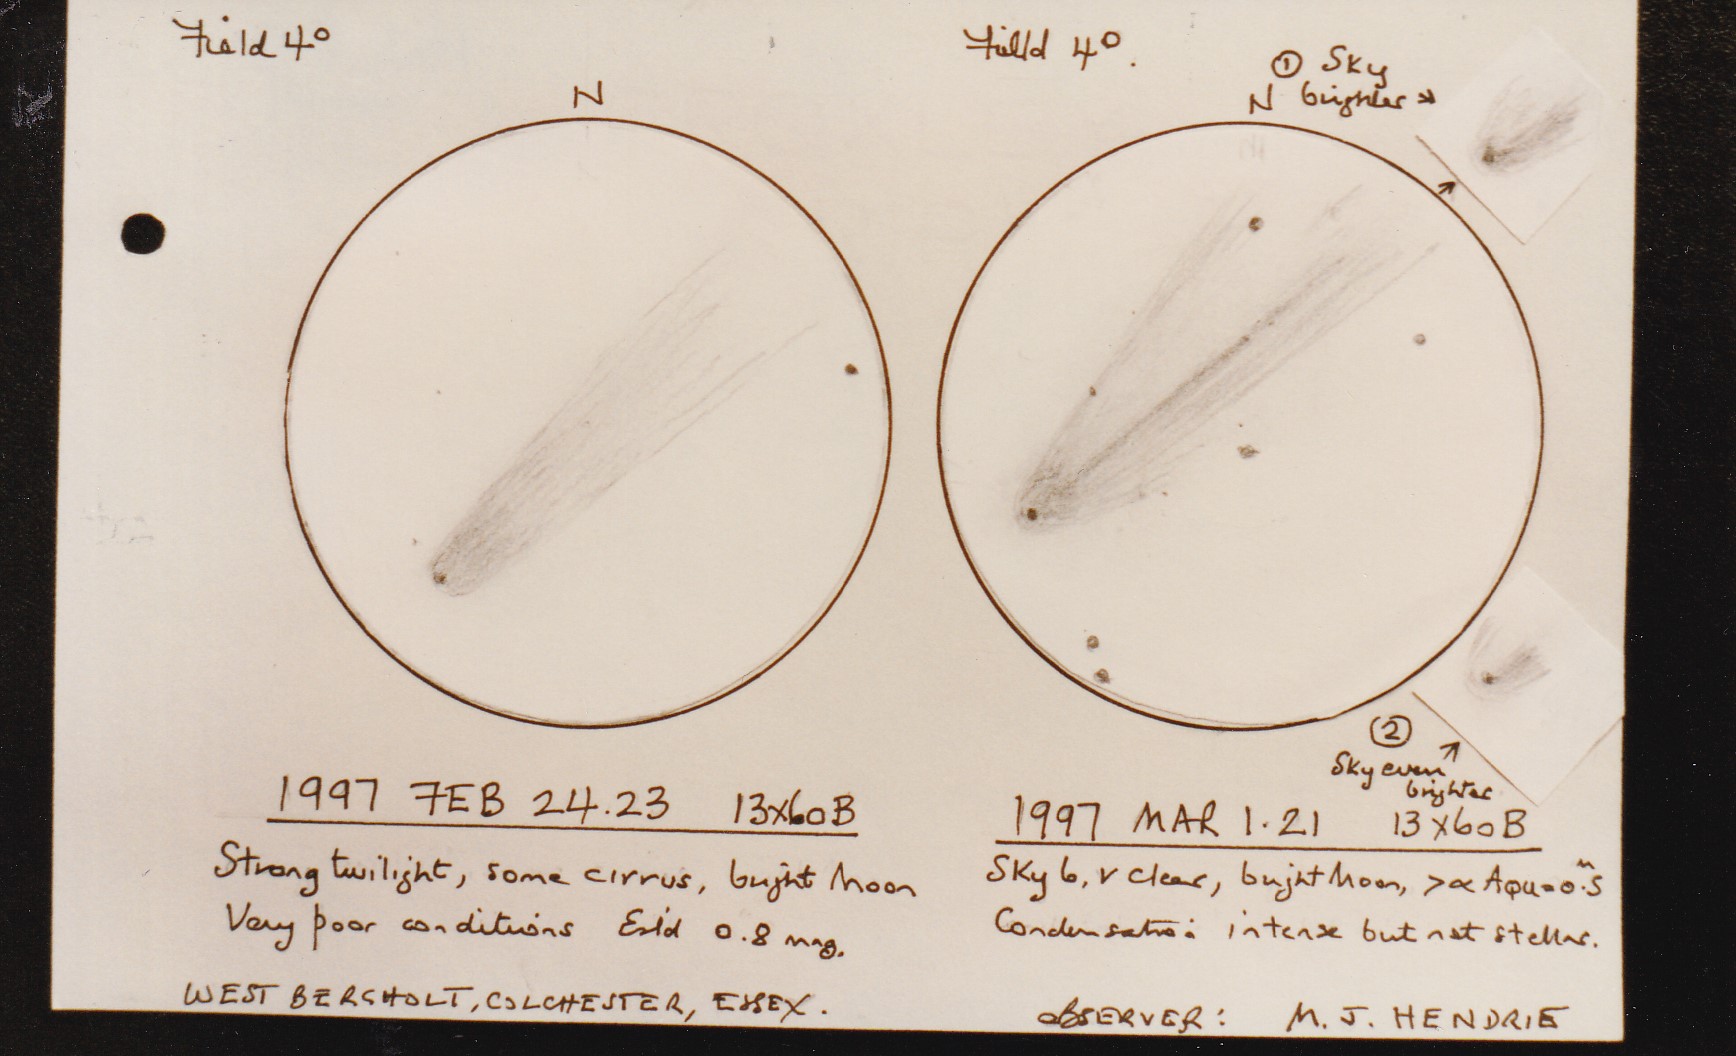 Field 4°
N
Field 4°.
N
① Sky
brighter →
② 
Sky even
brighter
1997 FEB 24.23 13x60B
Strong twilight, some cirrus, bright Moon
Very poor conditions Est'd 0.8 mag.
1997 MAR 1.21 13x60B
Sky 6, v clear, bright Moon, > α Aqu = 0.ᵐ5
Condensation: intense but not stellar.
WEST BERGHOLT, COLCHESTER, ESSEX.
OBSERVER: M. J. HENDRIE